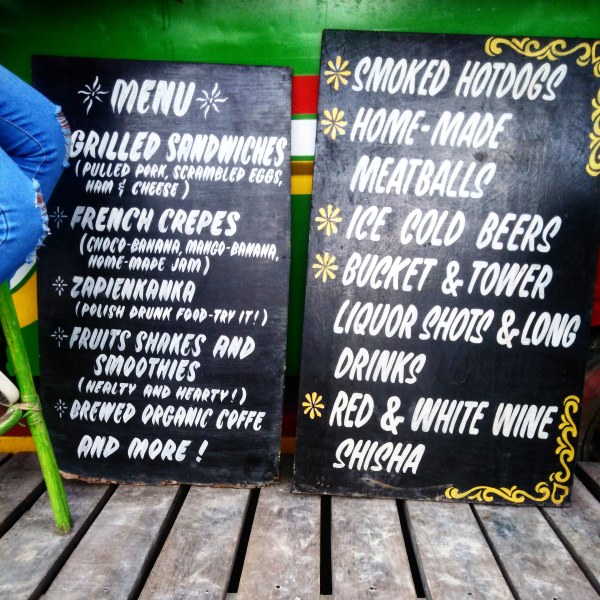 MENU
GRILLED SANDWICHES
(PULLED PORK, SCRAMBLED EGGS,
HAM & CHEESE)
FRENCH CREPES
(CHOCO-BANANA, MANGO-BANANA,
HOME-MADE JAM)
ZAPIENKANKA
(POLISH DRUNK FOOD-TRY IT!)
FRUITS SHAKES AND
SMOOTHIES
(HEALTY AND HEARTY!)
BREWED ORGANIC COFFE
AND MORE!
SMOKED HOTDOGS
HOME-MADE
MEATBALLS
ICE COLD BEERS
BUCKET & TOWER
LIQUOR SHOTS & LONG
DRINKS
RED & WHITE WINE
SHISHA